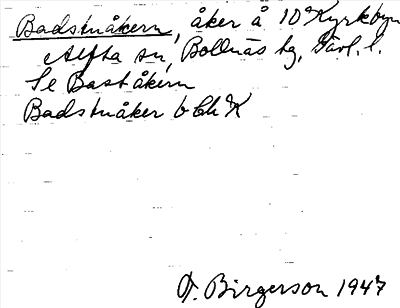 Badstuåkern, åker å 10 Kyrkbyn
Alfta sn, Bollnäs tg, Gävl. l.
Se Baståkern
Badstuåker
F. Birgerson 1947